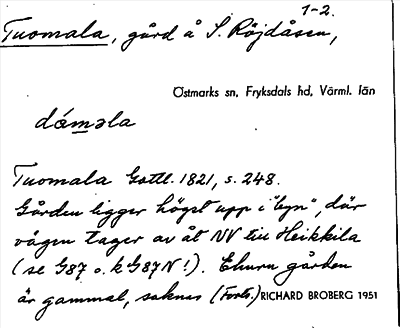 1-2.
Tuomala, gård å S. Röjdåsen,
Östmarks sn, Fryksdals hd, Värml. län
dómǝla
Tuomala Gottl. 1821, s. 248.
Gården ligger högst upp i "byn", där
vägen tager av åt NV till Heikkilä
(se G87 o. k G87N!). Ehuru gården
är gammal, saknas (Forts.) RICHARD BROBERG 1951